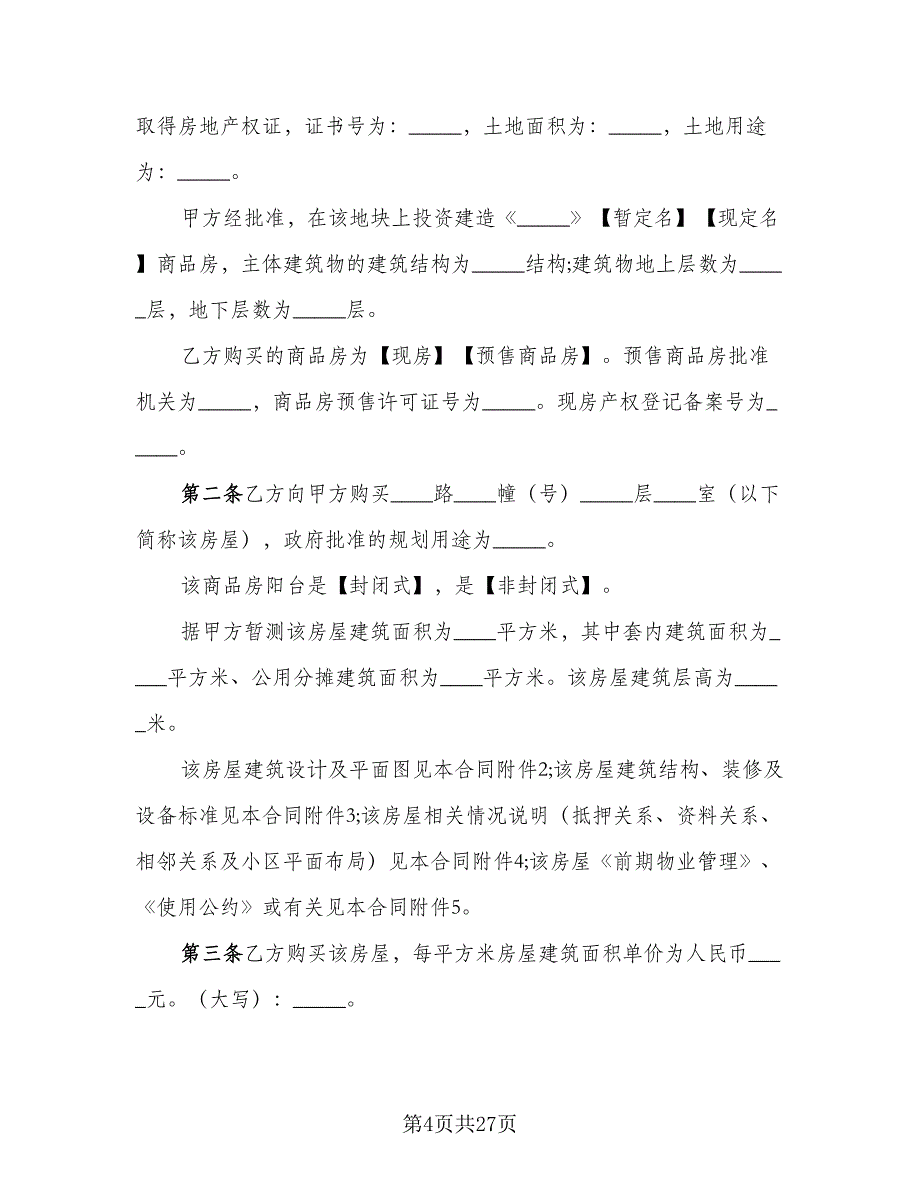 取得房地产权证，证书号为：_____，土地面积为：_____，土地用途
为：_____。
甲方经批准，在该地块上投资建造《_____》【暂定名】【现定名
】商品房，主体建筑物的建筑结构为_____结构;建筑物地上层数为____
_层，地下层数为_____层。
乙方购买的商品房为【现房】【预售商品房】。预售商品房批准
机关为_____，商品房预售许可证号为_____。现房产权登记备案号为_
____。
第二条乙方向甲方购买____路____幢（号）_____层____室（以下
简称该房屋），政府批准的规划用途为_____。
该商品房阳台是【封闭式】，是【非封闭式】。
据甲方暂测该房屋建筑面积为____平方米，其中套内建筑面积为_
___平方米、公用分摊建筑面积为____平方米。该房屋建筑层高为____
_米。
该房屋建筑设计及平面图见本合同附件2;该房屋建筑结构、装修及
设备标准见本合同附件3;该房屋相关情况说明（抵押关系、资料关系、
相邻关系及小区平面布局）见本合同附件4;该房屋《前期物业管理》、
《使用公约》或有关见本合同附件5。
第三条乙方购买该房屋，每平方米房屋建筑面积单价为人民币___
_元。（大写）：_____。
第4页共27页